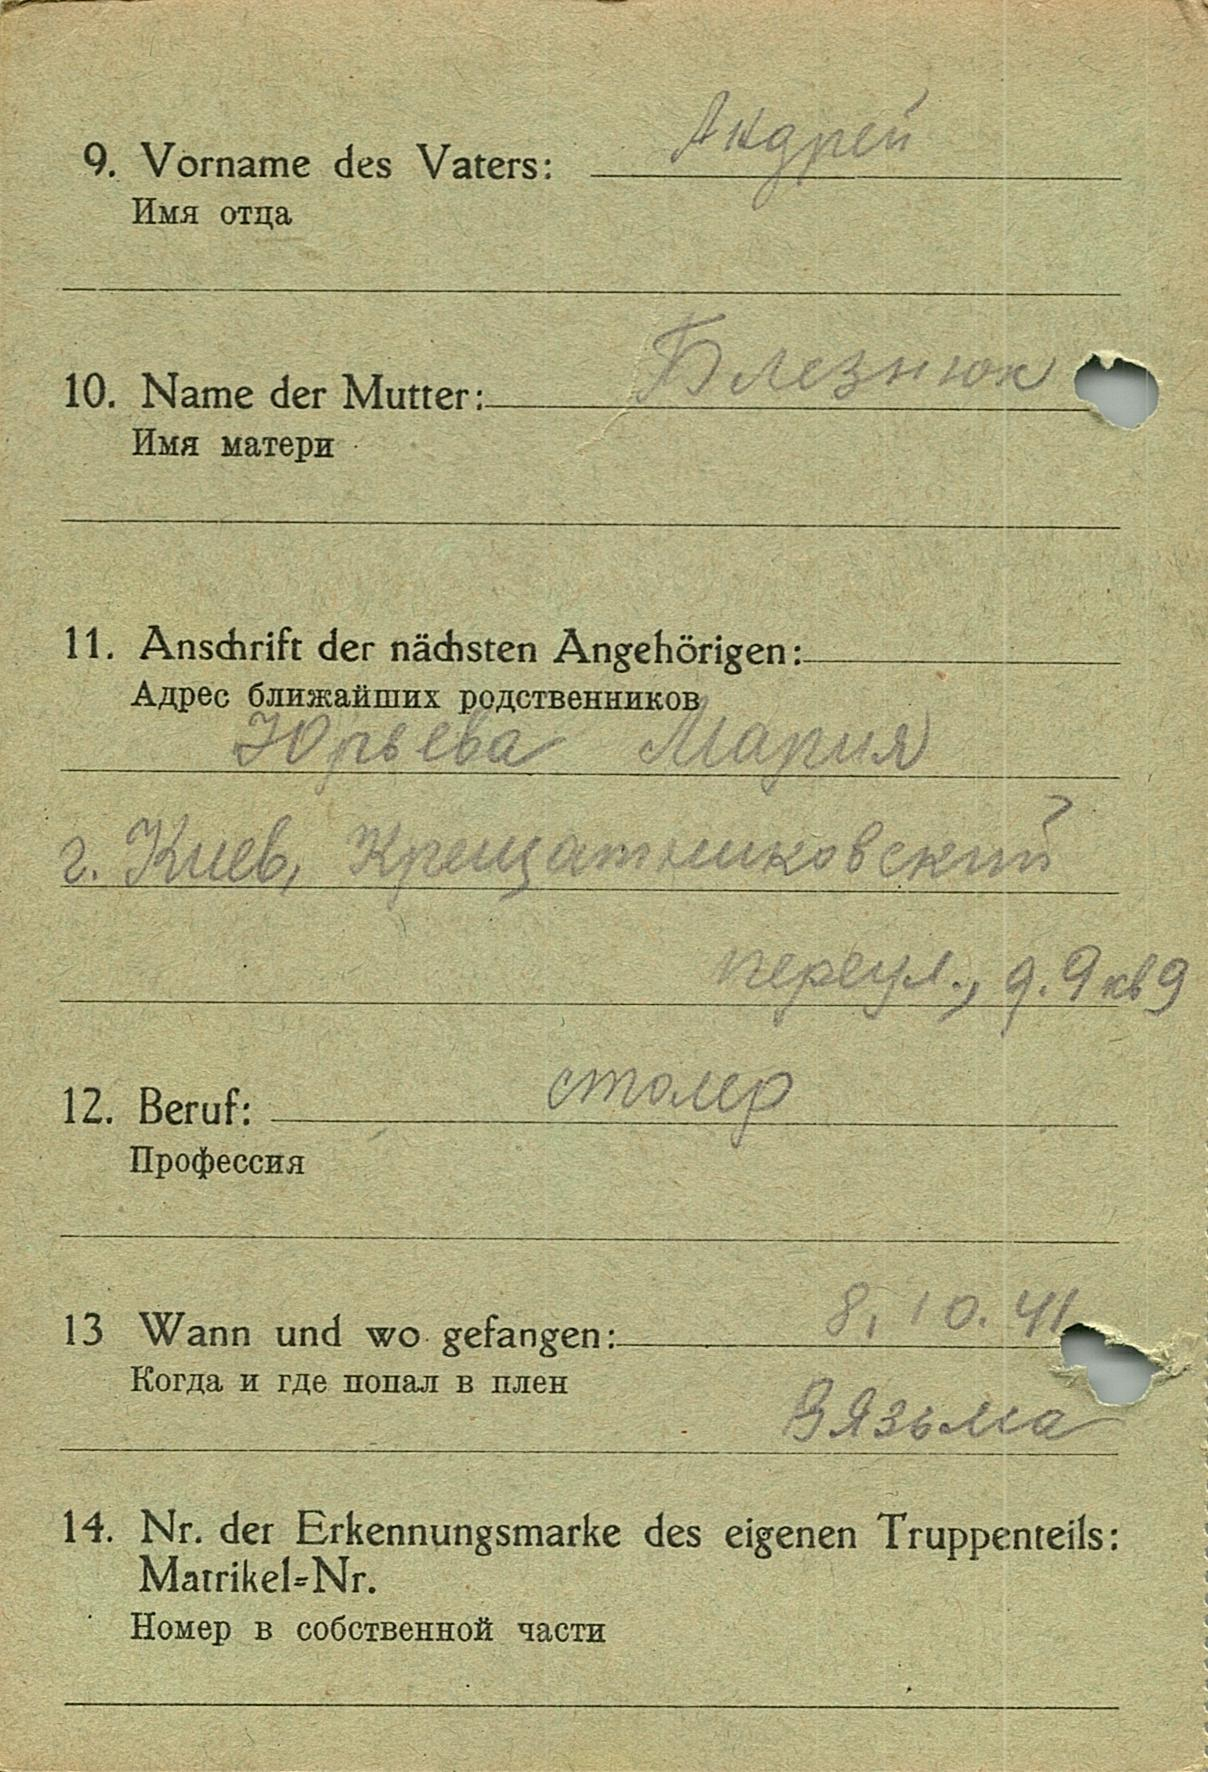 9. Vorname des Vaters: Андрей
Имя отца
10. Name der Mutter: Блезнюк
Имя матери
11. Anschrift der nächsten Angehörigen:
Адрес ближайших родственников
Юрьева Мария
г. Киев, Крещатиковский
переул., д. 9 кв 9
12. Beruf: столяр
Профессия
13 Wann und wo gefangen: 8.10.41
Когда и где попал в плен
Вязьма
14. Nr. der Erkennungsmarke des eigenen Truppenteils:
Matrikel-Nr.
Номер в собственной части